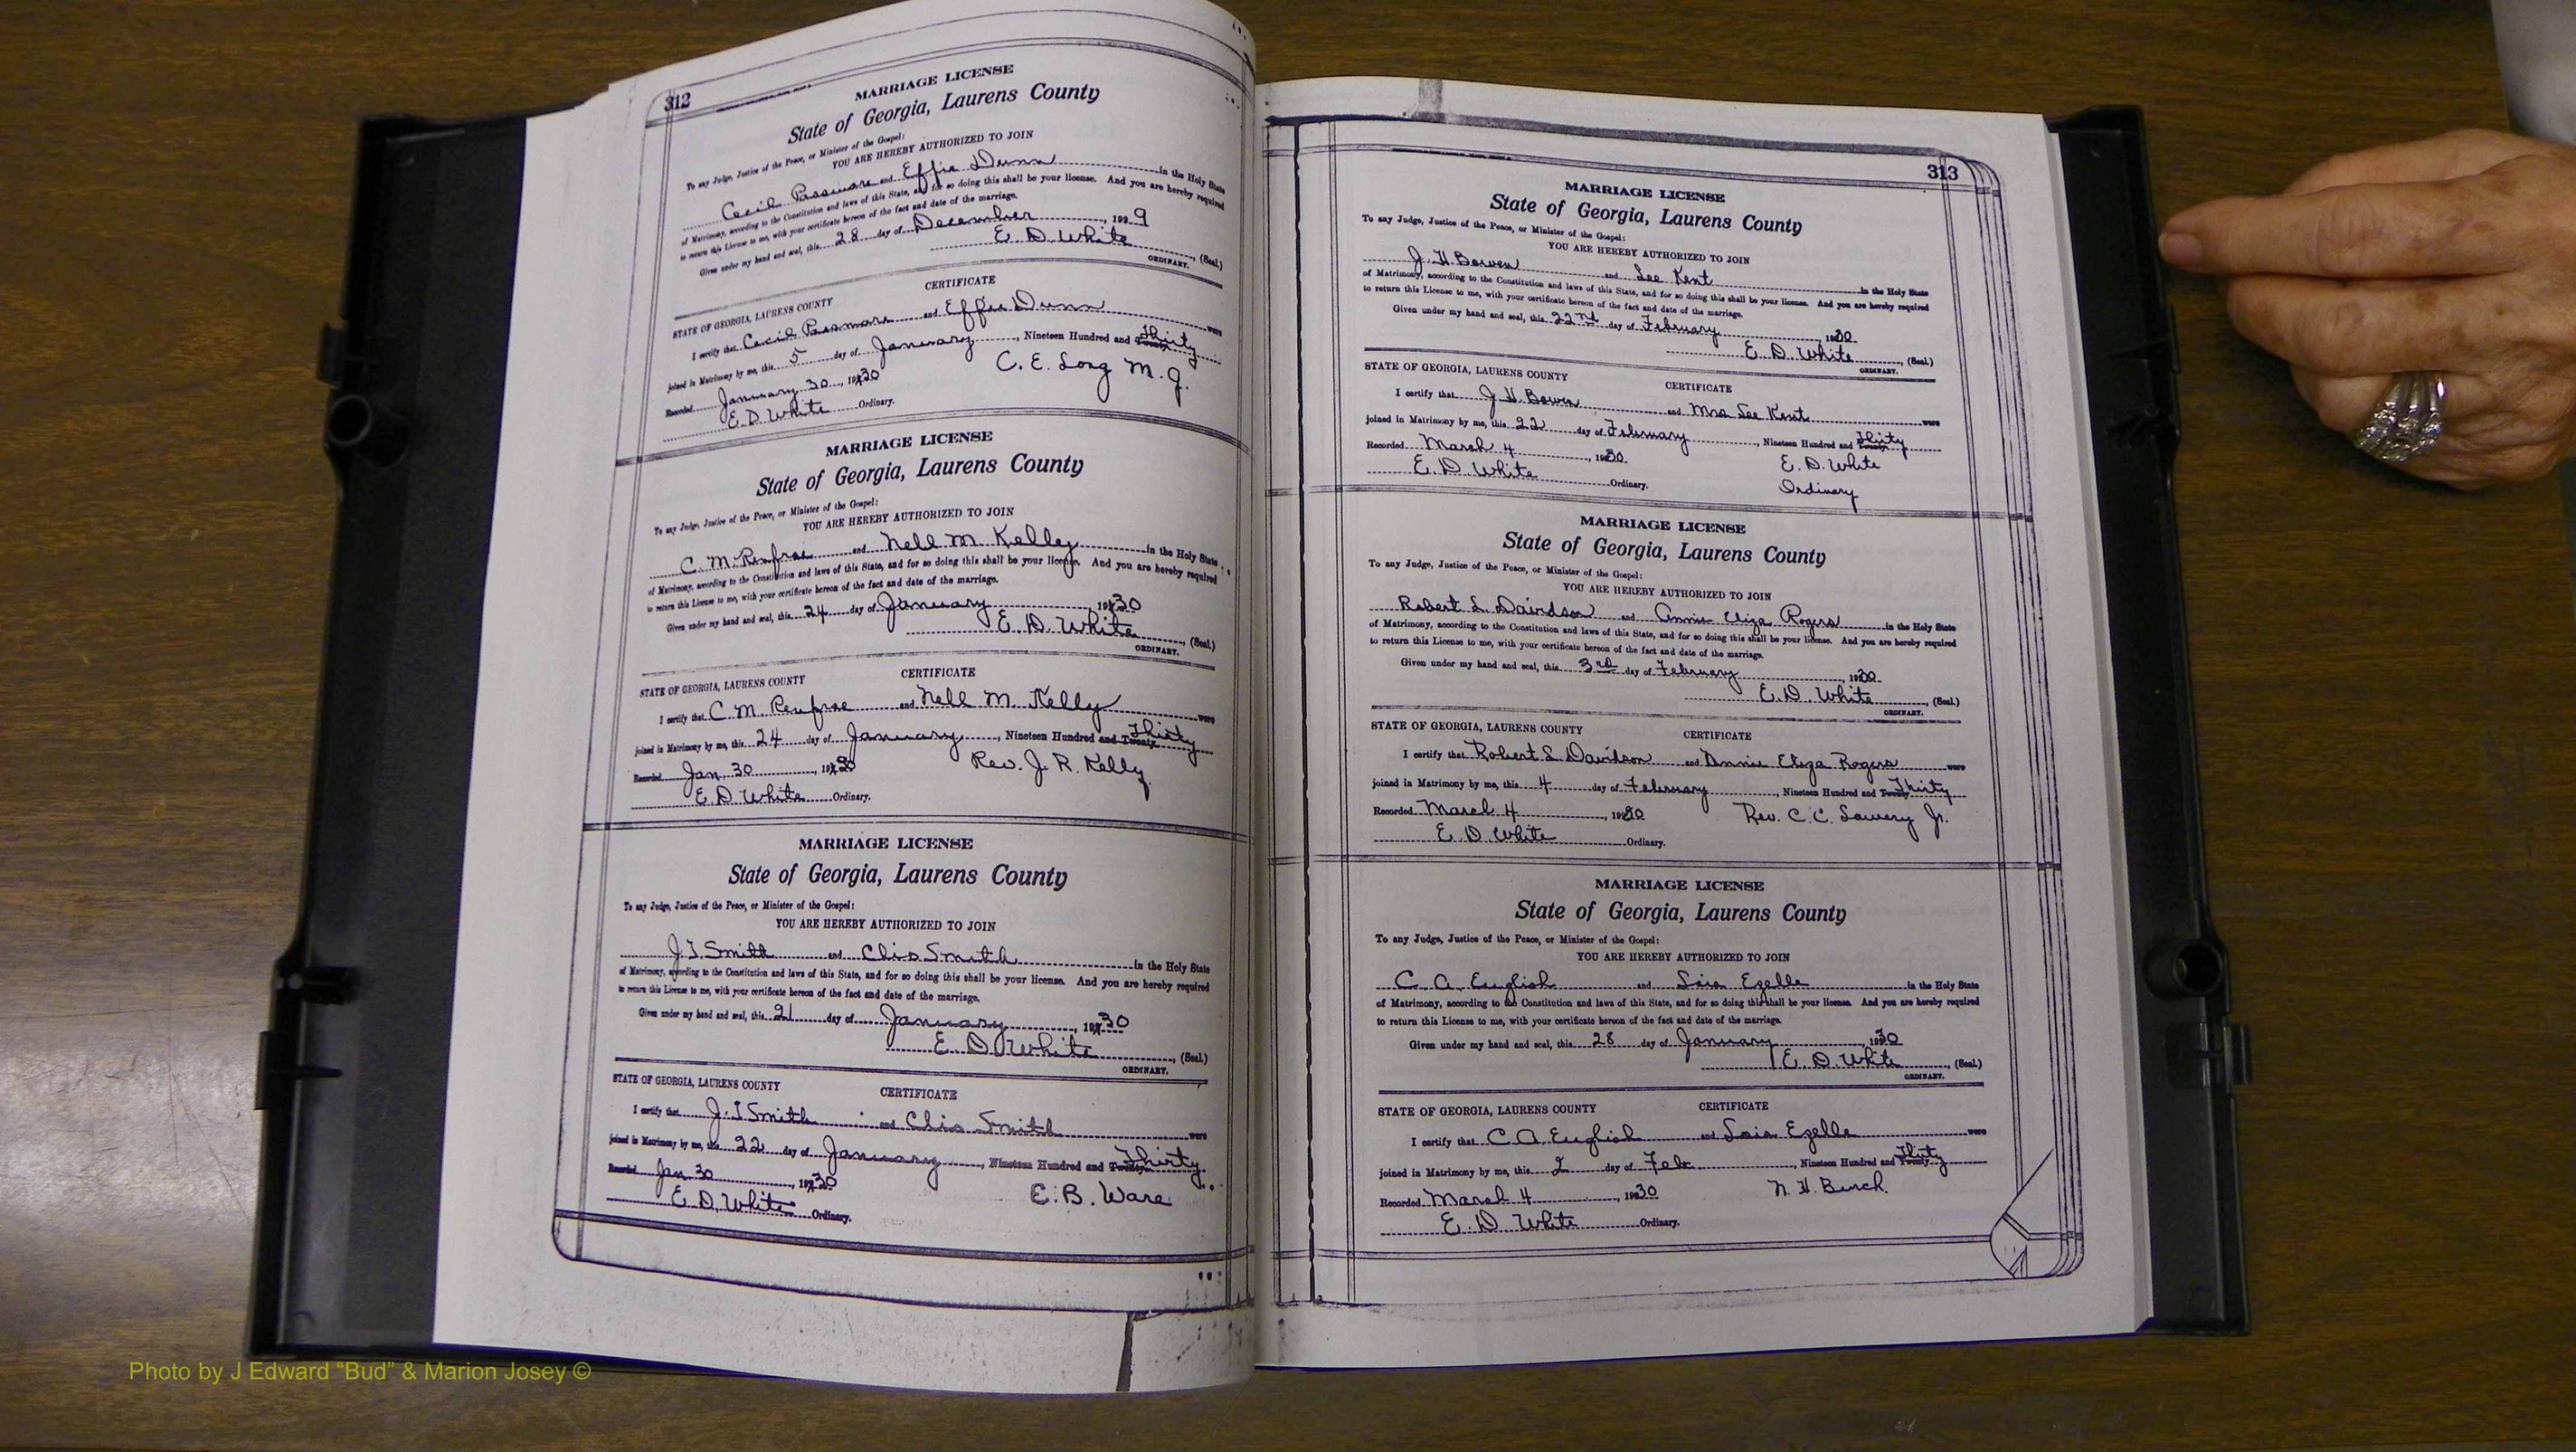 312
MARRIAGE LICENSE
State of Georgia, Laurens County
To any Judge, Justice of the Peace, or Minister of the Gospel:
YOU ARE HEREBY AUTHORIZED TO JOIN
Cecil Passmore and Effie Dunn in the Holy State
of Matrimony, according to the Constitution and laws of this State, and for so doing this shall be your license. And you are hereby required
to return this License to me, with your certificate hereon of the fact and date of the marriage.
Given under my hand and seal, this 28 day of December, 1929
E. D. White (Seal.)
ORDINARY.
CERTIFICATE
STATE OF GEORGIA, LAURENS COUNTY
I certify that Cecil Passmore and Effie Dunn were
joined in Matrimony by me, this 5 day of January, Nineteen Hundred and Twenty Thirty
Recorded January 30, 1930 C. E. Long M. G.
E. D. White Ordinary.
MARRIAGE LICENSE
State of Georgia, Laurens County
To any Judge, Justice of the Peace, or Minister of the Gospel:
YOU ARE HEREBY AUTHORIZED TO JOIN
C. M. Renfroe and Nell M. Kelley in the Holy State
of Matrimony, according to the Constitution and laws of this State, and for so doing this shall be your license. And you are hereby required
to return this License to me, with your certificate hereon of the fact and date of the marriage.
Given under my hand and seal, this 24 day of January 1930
E. D. White, (Seal.)
ORDINARY.
CERTIFICATE
STATE OF GEORGIA, LAURENS COUNTY
I certify that C. M. Renfroe and Nell M. Kelly were
joined in Matrimony by me, this 24 day of January, Nineteen Hundred and Twenty Thirty
Recorded Jan 30, 1930 Rev. J. R. Kelly
E. D. White Ordinary.
MARRIAGE LICENSE
State of Georgia, Laurens County
To any Judge, Justice of the Peace, or Minister of the Gospel:
YOU ARE HEREBY AUTHORIZED TO JOIN
Smith and Clio Smith in the Holy State
of Matrimony, according to the Constitution and laws of this State, and for so doing this shall be your license. And you are hereby required
to return this License to me, with your certificate hereon of the fact and date of the marriage.
Given under my hand and seal, this 21 day of January, 1930
E. D. White, (Seal.)
ORDINARY.
STATE OF GEORGIA, LAURENS COUNTY CERTIFICATE
I certify that Smith and Clio Smith were
joined in Matrimony by me, this 22 day of January, Nineteen Hundred and Twenty Thirty
Recorded Jan 30, 1930 E. B. Ware
E. D. White Ordinary.
313
MARRIAGE LICENSE
State of Georgia, Laurens County
To any Judge, Justice of the Peace, or Minister of the Gospel:
YOU ARE HEREBY AUTHORIZED TO JOIN
J. H. Bowen and Lee Kent in the Holy State
of Matrimony, according to the Constitution and laws of this State, and for so doing this shall be your license. And you are hereby required
to return this License to me, with your certificate hereon of the fact and date of the marriage.
Given under my hand and seal, this 22nd day of February 1930
E. D. White, (Seal.)
ORDINARY.
STATE OF GEORGIA, LAURENS COUNTY CERTIFICATE
I certify that J. H. Bowen and Mrs Lee Kent were
joined in Matrimony by me, this 22 day of February, Nineteen Hundred and Twenty Thirty
Recorded March 4, 1930 E. D. White
E. D. White Ordinary. Ordinary
MARRIAGE LICENSE
State of Georgia, Laurens County
To any Judge, Justice of the Peace, or Minister of the Gospel:
YOU ARE HEREBY AUTHORIZED TO JOIN
Robert L. Davidson and Annie Eliza Rogers in the Holy State
of Matrimony, according to the Constitution and laws of this State, and for so doing this shall be your license. And you are hereby required
to return this License to me, with your certificate hereon of the fact and date of the marriage.
Given under my hand and seal, this 3rd day of February, 1930
E. D. White, (Seal.)
ORDINARY.
STATE OF GEORGIA, LAURENS COUNTY CERTIFICATE
I certify that Robert L. Davidson and Annie Eliza Rogers were
joined in Matrimony by me, this 4 day of February, Nineteen Hundred and Twenty Thirty
Recorded March 4, 1930 Rev. C. C. Lowery Jr.
E. D. White Ordinary.
MARRIAGE LICENSE
State of Georgia, Laurens County
To any Judge, Justice of the Peace, or Minister of the Gospel:
YOU ARE HEREBY AUTHORIZED TO JOIN
C. A. English and Lois Ezelle in the Holy State
of Matrimony, according to the Constitution and laws of this State, and for so doing this shall be your license. And you are hereby required
to return this License to me, with your certificate hereon of the fact and date of the marriage.
Given under my hand and seal, this 28 day of January, 1930
E. D. White, (Seal.)
ORDINARY.
STATE OF GEORGIA, LAURENS COUNTY CERTIFICATE
I certify that C A English and Lois Ezelle were
joined in Matrimony by me, this 2 day of Feb., Nineteen Hundred and Twenty Thirty
Recorded March 4, 1930 N. H. Burch.
E. D. White Ordinary.
Photo by J Edward “Bud” & Marion Josey ©